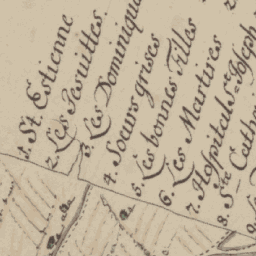 1. St. Estienne
2. Les Jesuittes
3. Les Dominique
4. Soeurs grises
5. Les bonnes Filles
6. Les Martires
7. Hospital St. Joseph
8. Ste. Cath
9.